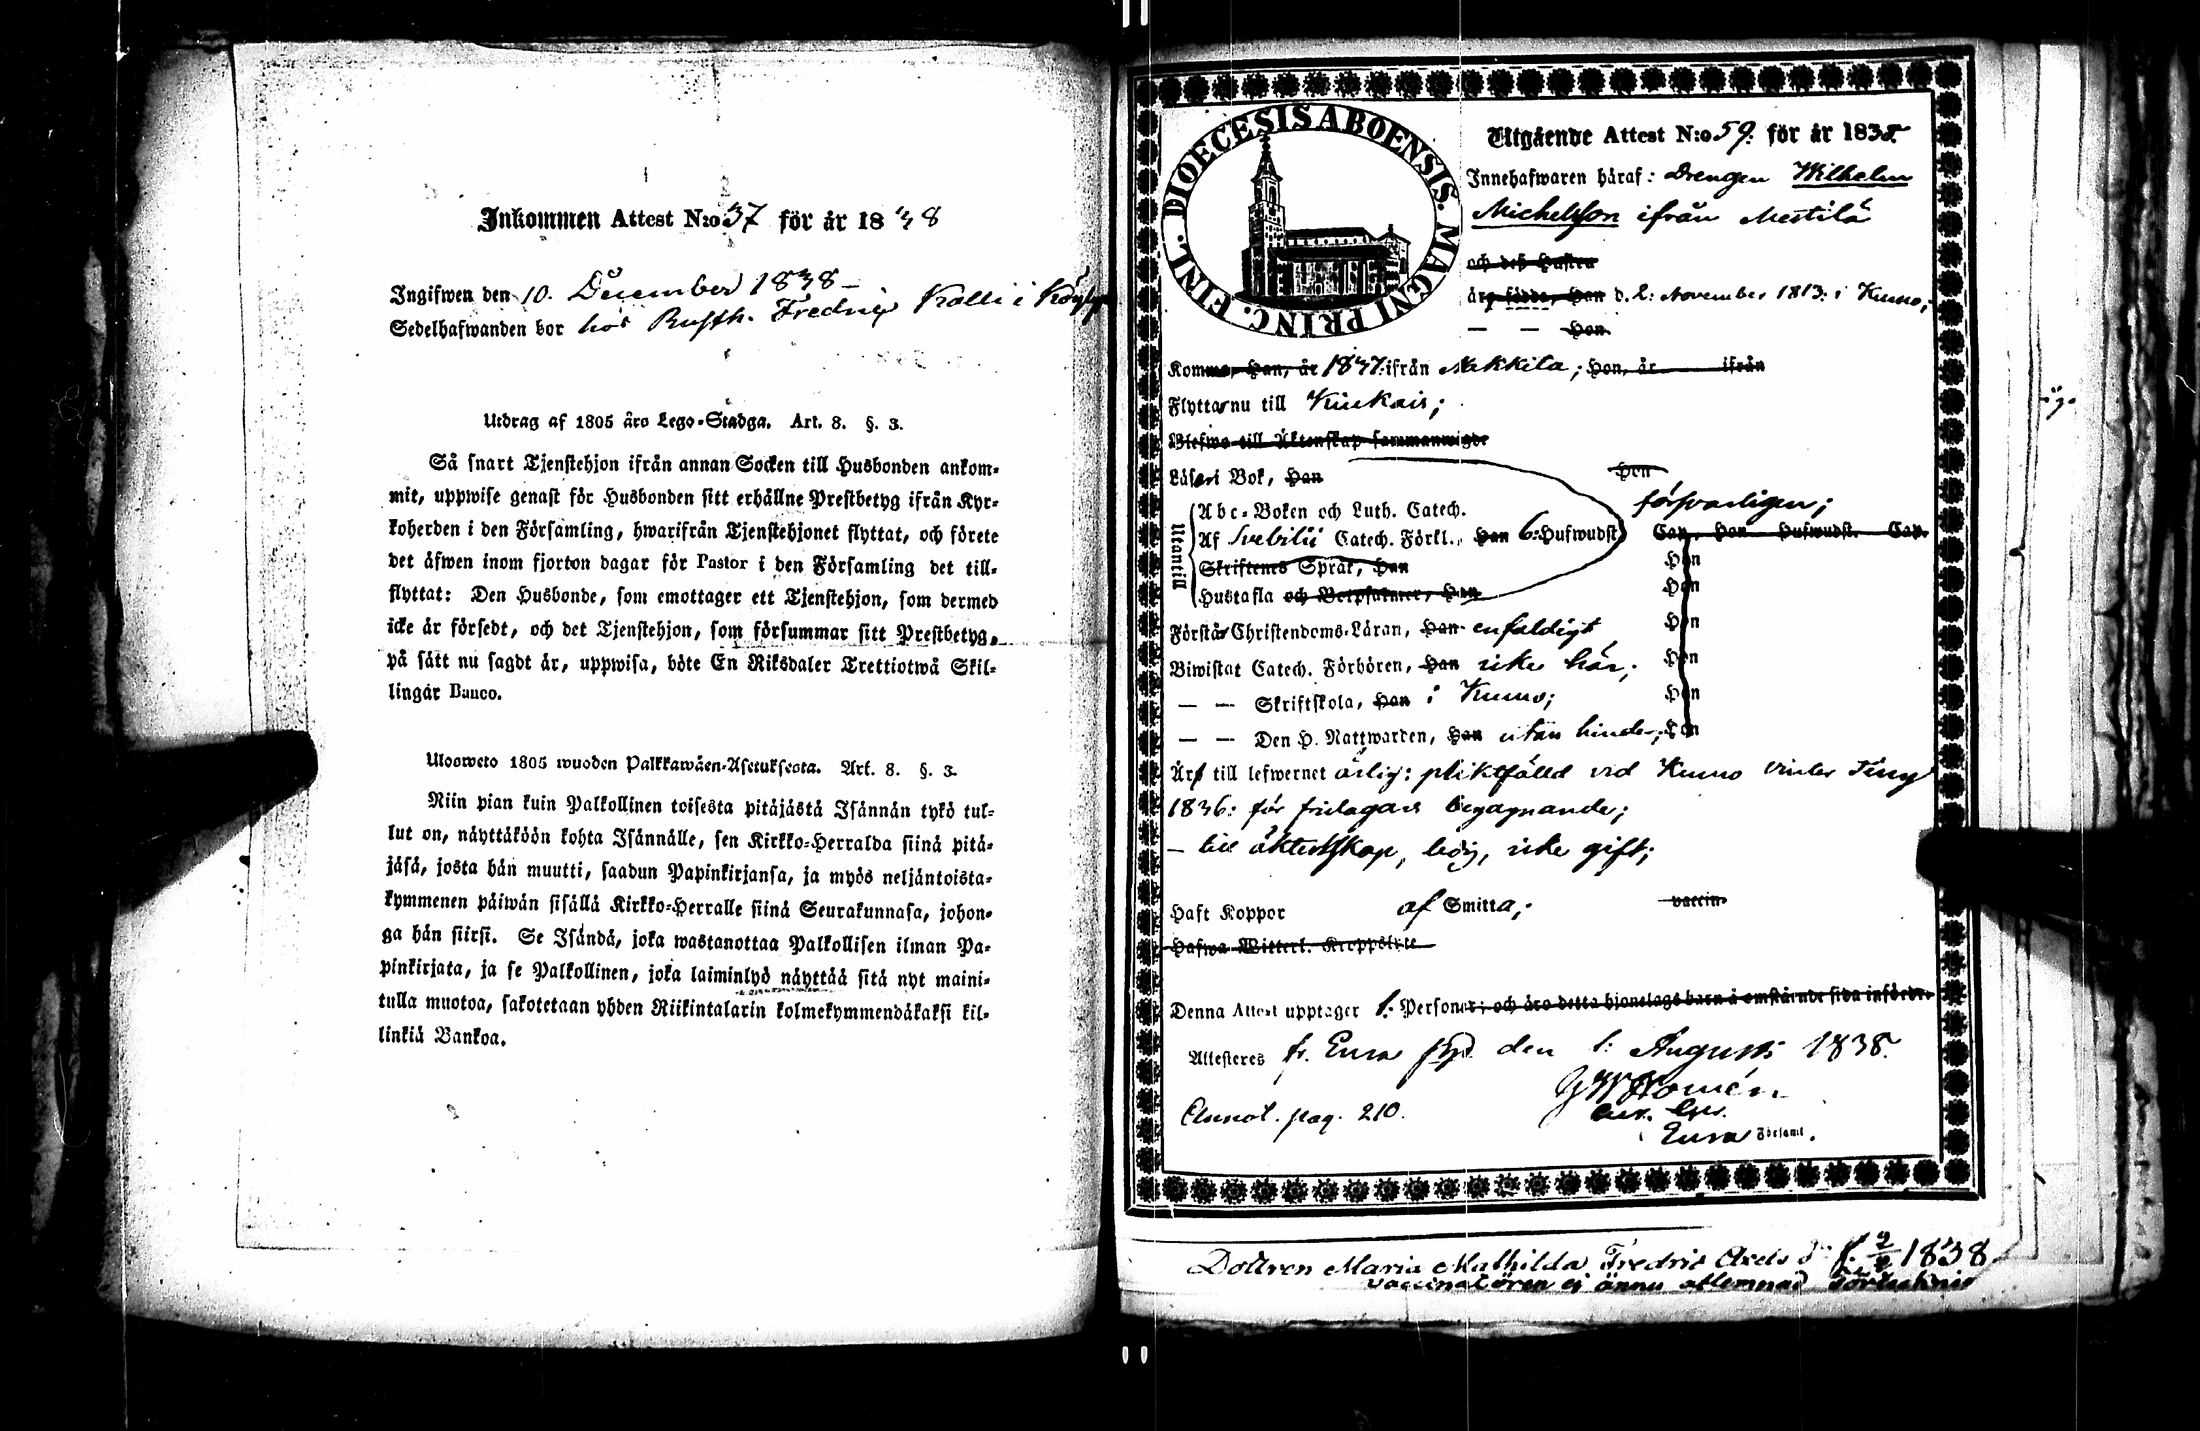 Inkommen Attest N:o 37 för år 1838
Ingifwen den 10. December 1838 –
Sedelhafwanden bor hos Rusth. Fredric Kolli i
Utdrag af 1805 års Lego-Stadga. Art. 8. §. 3.
Så snart Tjenstehjon ifrån annan Socken till Husbonden ankom-
mit, uppwise genast för Husbonden sitt erhållne Prestbetyg ifrån Kyr-
koherden i den Församling, hwarifrån Tjenstehjonet flyttat, och förete
det äfwen inom fjorton dagar för Pastor i den Församling det till-
flyttat: Den Husbonde, som emottager ett Tjenstehjon, som dermed
icke är försedt, och det Tjenstehjon, som försummar sitt Prestbetyg,
på sätt nu sagdt är, uppwisa, böte En Riksdaler Trettiotwå Skil-
lingar Banco.
Ulosweto 1805 wuoden Palkkawäen-Asetuksesta. Art. 8. §. 3.
Niin pian kuin Palkollinen toisesta pitäjästä Isännän tykö tul-
lut on, näyttäköön kohta Isännälle, sen Kirkko-Herralda siinä pitä-
jäsä, josta hän muutti, saadun Papinkirjansa, ja myös neljäntoista-
kymmenen päiwän sisällä Kirkko-Herralle siinä Seurakunnasa, johon-
ga hän siirsi. Se Isändä, joka wastanottaa Palkollisen ilman Pa-
pinkirjata, ja se Palkollinen, joka laiminlyö näyttää sitä nyt maini-
tulla muotoa, sakotetaan yhden Riikintalarin kolmekymmendäkaksi kil-
linkiä Bankoa.
DIOECESIS ABOENSIS. MAGNI PRINC. FINL.
Utgående Attest N:o 59. för år 1838.
Innehafwaren häraf: Drengen Wilhelm
Michelsson ifrån Mestilä
och deß Hustru
äro födde, Han d. 2: November 1813. i Kumo;
— — Hon
Komma, Han, år 1837. ifrån Nakkila; Hon, år ifrån
Flyttar nu till Kiukais;
Blefwo till Äktenskap sammanwigde
Läser i Bok, Han Hon
försvarligen;
Utantill
Abc-Boken och Luth. Catech.
Af Svebilii Catech. Förkl., Han 6: Hufwudst. Cap, Hon Hufwudst. Cap.
Skriftenes Språk, Han Hon
Hustafla och Botpsalmer, Han Hon
Förstår Christendoms-Läran, Han enfaldigt Hon
Biwistat Catech. Förhören, Han icke här; Hon
— — Skriftskola, Han i Kumo; Hon
— — Den H. Nattwarden, Han utan hinder; Hon
Är till lefwernet ärlig: pliktfälld vid Kumo Vinter Ting
1836: för begagnande;
– till äktenskap, ledig, icke gift;
Haft Koppor af Smitta; vaccin.
Hafwa Witterl. Kroppslyte
Denna Attest upptager 1. Personer; och äro detta hjonelags barn å omstående sida införde.
Attesteres fr. Eura den 1: Augusti 1838.
Annot. pag. 210.
Eura Församl.
Dottren Maria Mathilda Fredric Axels d:r f. 2/2 1838
Vaccinatören ej ännu aflemnad